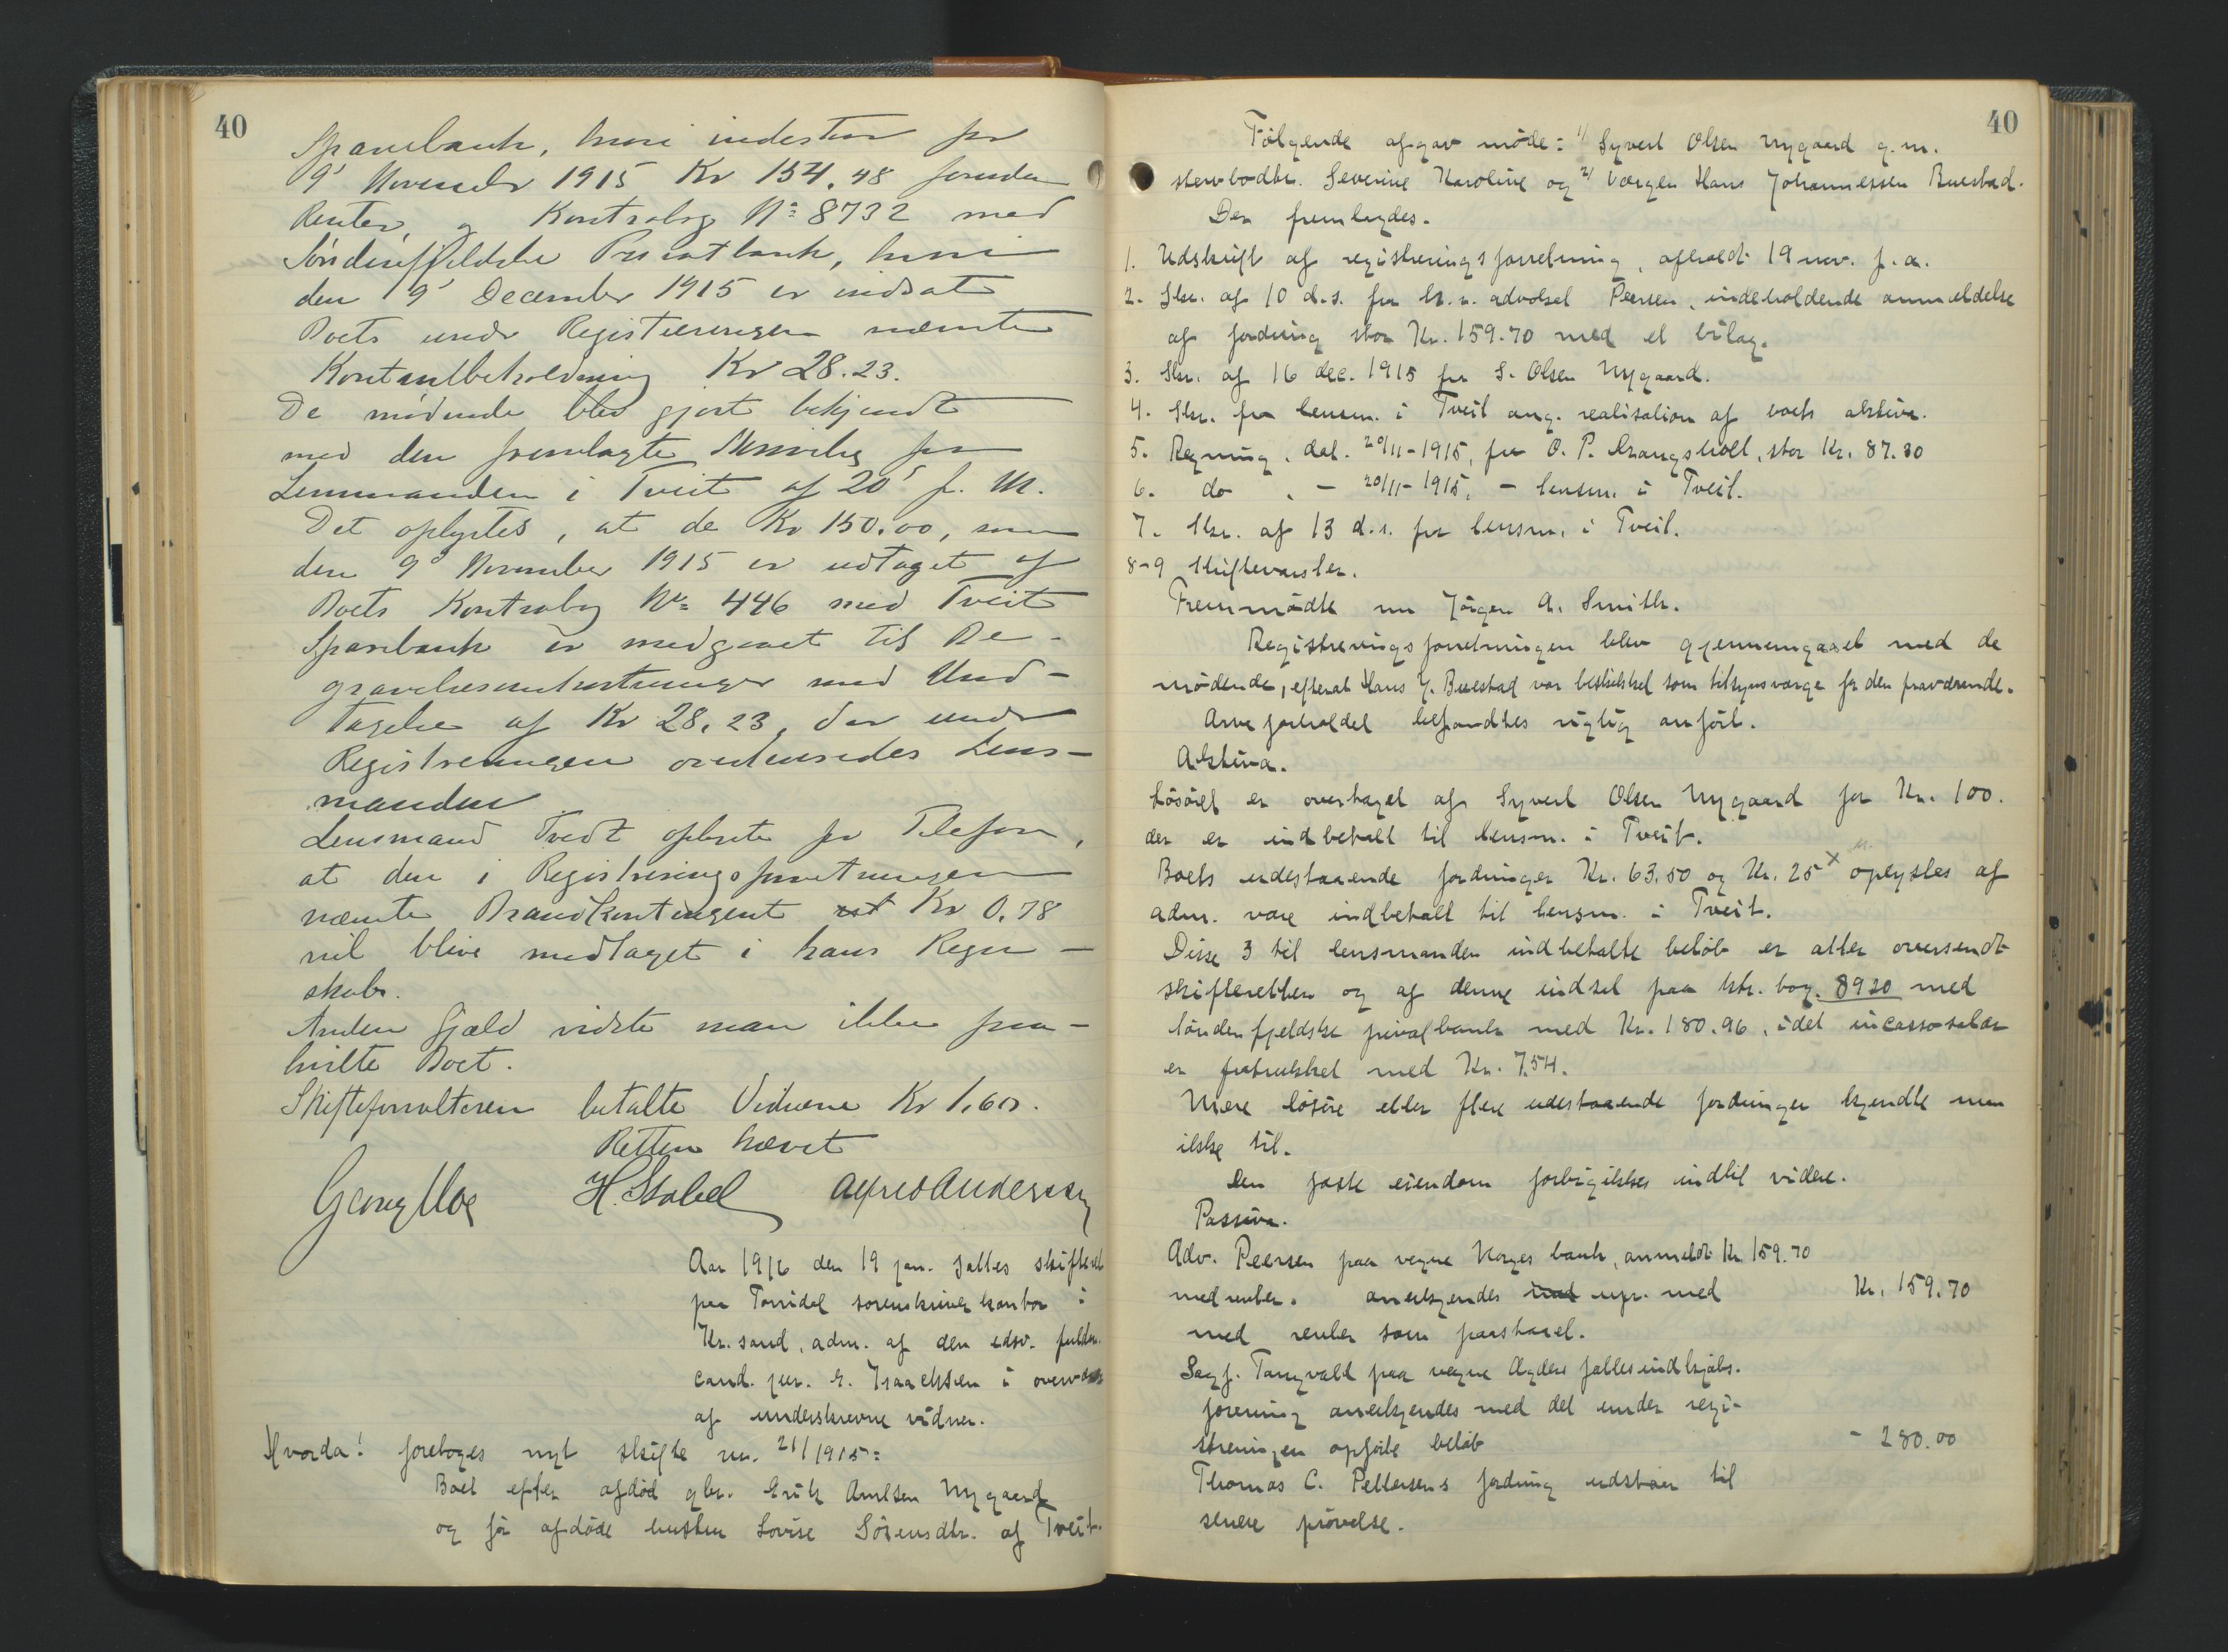 40
Sparebank, hvori indestaar pr
9' November 1915 Kr 154,48 foruden
Renter, og Kontrabog No 8732 med
Söndenfjeldske Privatbank, hvori
den 9' December 1915 er indsat
Boets under Registreringen nævnte
Kontantbeholdning Kr 28.23.
De mødende blev gjort bekjendt
med den fremlagte Skrivelse fra
Lensmanden i Tveit af 20' f. M.
Det oplystes, at de Kr 150.00, som
den 9' November 1915 er udtaget af
Boets Kontrabog No 446 med Tveit
Sparebank er medgaaet til Be-
gravelsesomkostninger med Und-
tagelse af Kr 28,23, der under
Registreringen overleveredes Lens-
manden
Lensmand Tvedt oplyste pr Telefon,
at den i Registreringsforretningen
nævnte Brandkontingent Kr 0,78
vil blive medtaget i hans Regn-
skab.
Anden Gjæld vidste man ikke paa-
hvilte Boet.
Skifteforvalteren betalte Vidnerne Kr 1,60.
Retten hævet
Georg Moe H. Stabel Alfred Andersen
Aar 1916 den 19 jan. sattes skifteret
paa Torridal sorenskriverkontor i
Kr.sand, adm. af den edsv. fuldm.
cand. jur. E. Isaachsen i overvær
af underskrevne vidner.
Hvorda! foretoges nyt skifte nr. 21/1915:
Boet efter afdød gbr. Erik Arnlsen Nygaard
og før afdøde hustru Lovise Sörensdtr. af Tveit.
40
Følgende afgav møde: 1/ Syvert Olsen Nygaard g.m.
stervbodtr. Severine Karoline og 2/ værgen Hans Johannessen Buestad.
Der fremlagdes.
1. Udskrift af registreringsforretning, afholdt 19 nov. f.a.
2. Skr. af 10 d.s. fra h.r. advokat Peersen, indeholdende anmeldelse
af fordring stor Kr. 159.70 med et bilag.
3. Skr. af 16 dec. 1915 fra S. Olsen Nygaard.
4. Skr. fra lensm. i Tveit ang. realisation af boets aktiva.
5. Regning, dat. 20/11-1915, fra O. P. Krangsholt, stor Kr. 87.30
6. do , - 20/11-1915, - lensm. i Tveit.
7. Skr. af 13 d.s. fra lensm. i Tveit.
8-9 Skiftevarsler.
Fremmødte nu Jörgen A. Smith.
Registreringsforretningen blev gjennemgaaet med de
mödende, efterat Hans J. Buestad var beskikket som tilsynsværge for den fraværende.
Arveforholdet befandtes rigtig anført.
Aktiva.
Løsøret er overtaget af Syvert Olsen Nygaard for Kr. 100.
der er indbetalt til lensm. i Tveit.
Boets udestaaende fordringer Kr. 63.50 og Kr. 25 x oplystes af
adm. være indbetalt til lensm. i Tveit.
Disse 3 til lensmanden indbetalte beløb er atter oversendt
skifteretten og af denne indsat paa ktr. bog. 8920 med
Söndenfjeldske privatbank med Kr. 180.96, idet incassosalær
er fratrukket med Kr. 7.54.
Mere løsøre eller flere udestaaende fordringer kjendte man
ikke til.
Den faste eiendom forbigikkes indtil videre.
Passiva.
Adv. Peersen paa vegne Norges bank, anmeldt Kr. 159.70
med renter. anerkjendes upr. med Kr. 159.70
med renter som paastaaet.
Sagf. Tangvald paa vegne Agders fællesindkjøbs-
forening anerkjendes med det under regi-
streringen opførte beløb - 280.00
Thomas C. Pettersens fordring udstaar til
senere prøvelse.